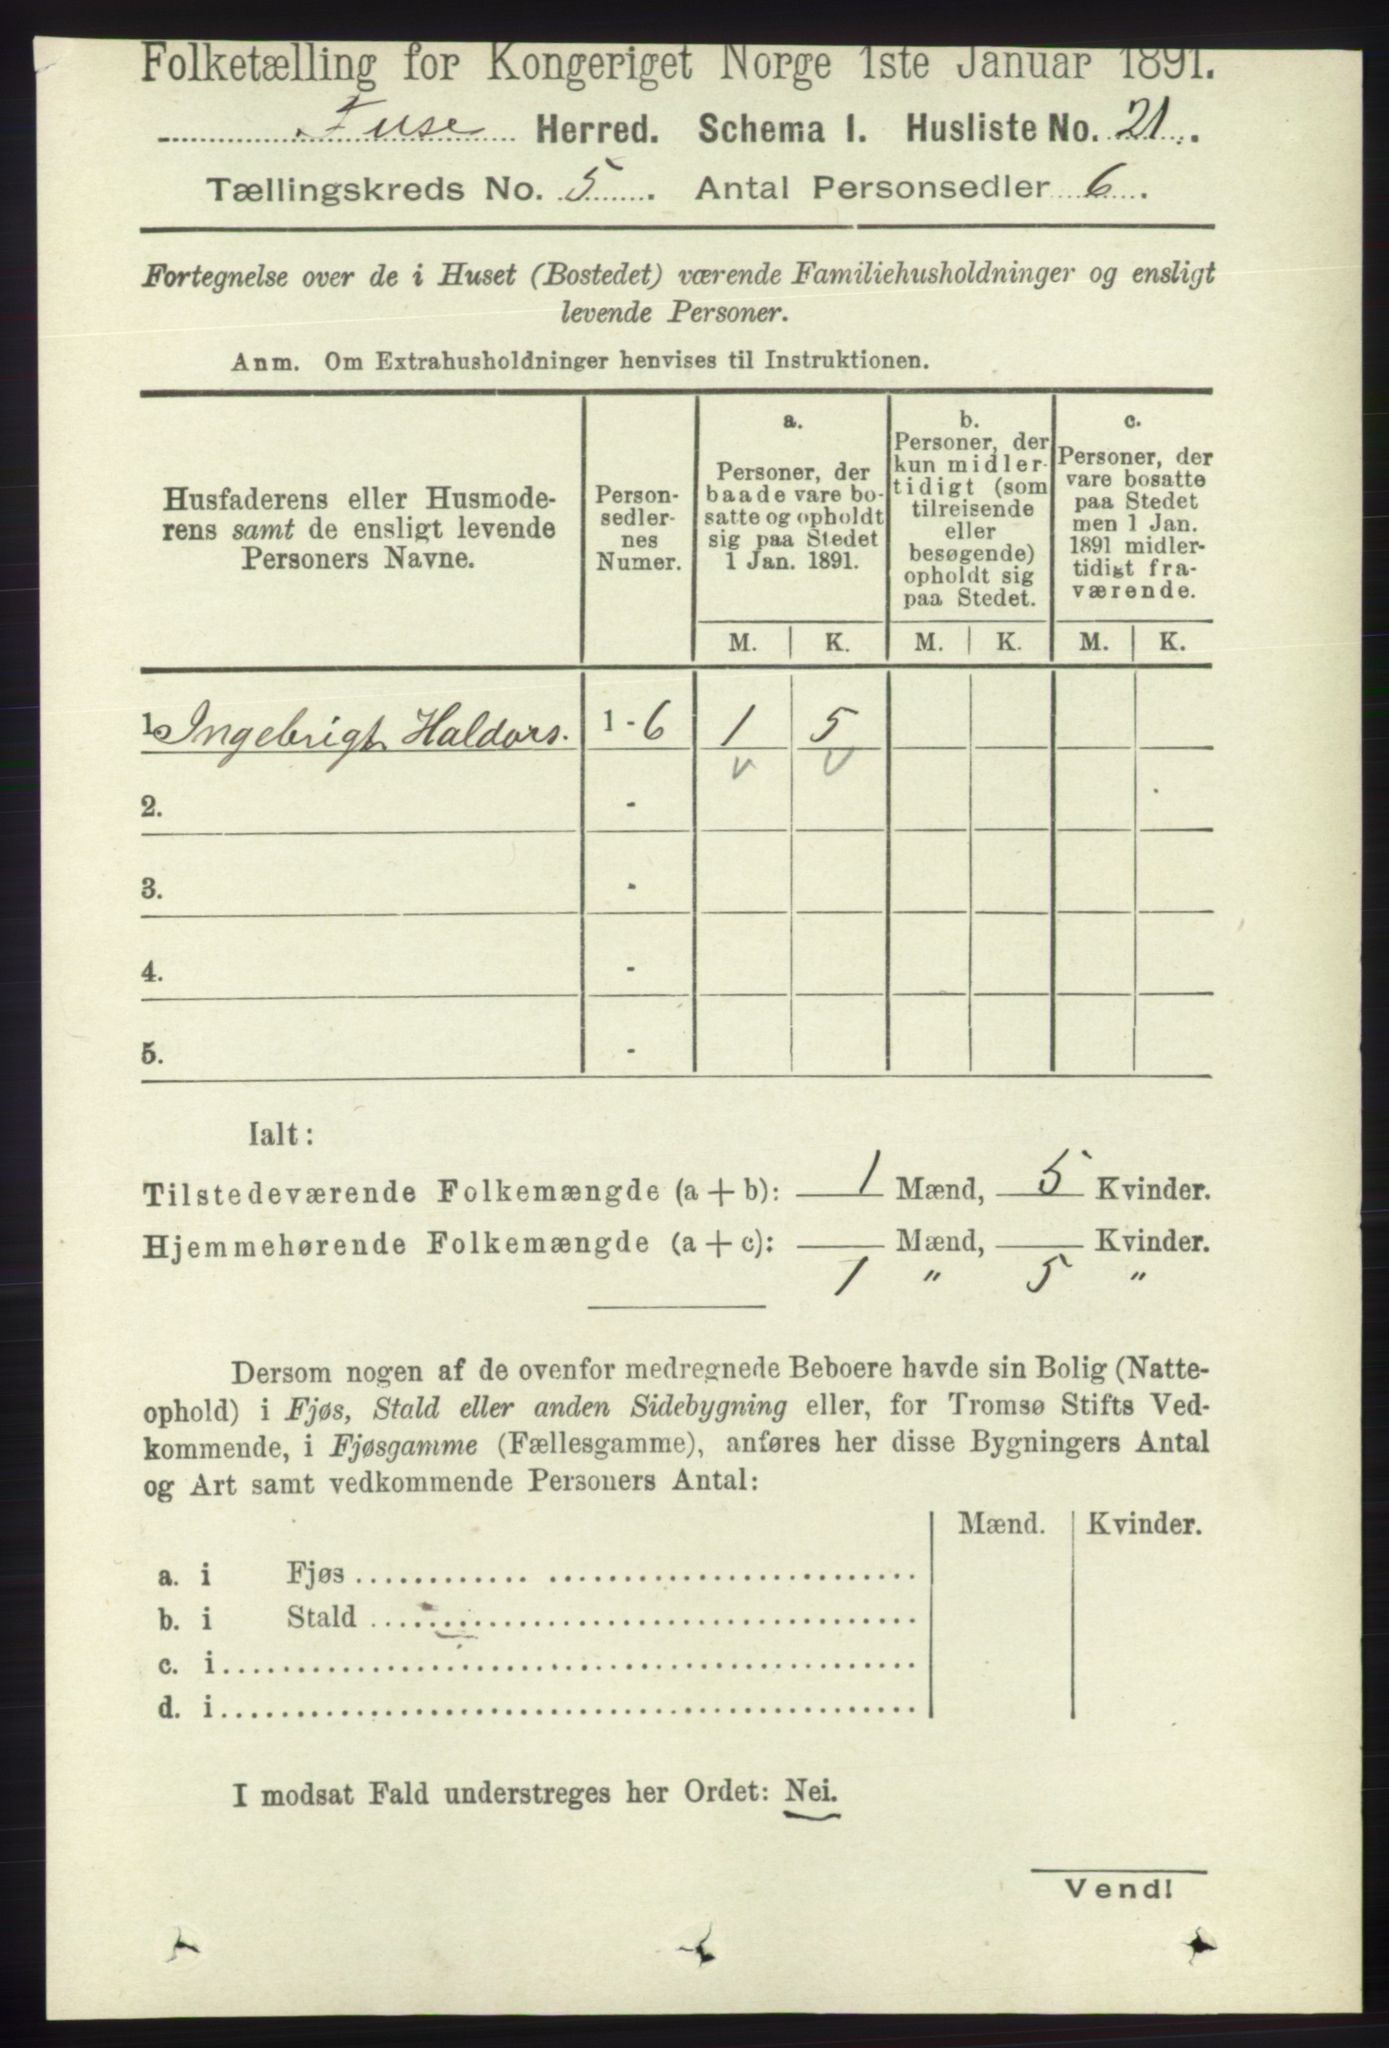 Folketælling for Kongeriget Norge 1ste Januar 1891.
Fuse Herred. Schema I. Husliste No. 21.
Tællingskreds No. 5. Antal Personsedler 6.
Fortegnelse over de i Huset (Bostedet) værende Familiehusholdninger og ensligt
levende Personer.
Anm. Om Extrahusholdninger henvises til Instruktionen.
Husfaderens eller Husmode-
rens samt de ensligt levende
Personers Navne.
Person-
sedler-
nes
Numer.
a.
Personer, der
baade vare bo-
satte og opholdt
sig paa Stedet
1 Jan. 1891.
b.
Personer, der
kun midler-
tidigt (som
tilreisende
eller
besøgende)
opholdt sig
paa Stedet.
c.
Personer, der
vare bosatte
paa Stedet
men 1 Jan.
1891 midler-
tidigt fra-
værende.
M. K. M. K. M. K.
1. Ingebrigt Haldors. 1 - 6 1 5
2. -
3. -
4. -
5. -
Ialt:
Tilstedeværende Folkemængde (a + b): 1 Mænd, 5 Kvinder.
Hjemmehørende Folkemængde (a + c): Mænd, Kvinder.
1 " 5 "
Dersom nogen af de ovenfor medregnede Beboere havde sin Bolig (Natte-
ophold) i Fjøs, Stald eller anden Sidebygning eller, for Tromsø Stifts Ved-
kommende, i Fjøsgamme (Fællesgamme), anføres her disse Bygningers Antal
og Art samt vedkommende Personers Antal:
Mænd. Kvinder.
a. i Fjøs
b. i Stald
c. i
d. i
I modsat Fald understreges her Ordet: Nei.
Vend!